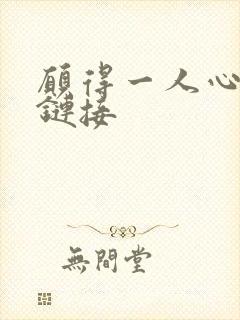 願得一人心
鏈接
無間堂